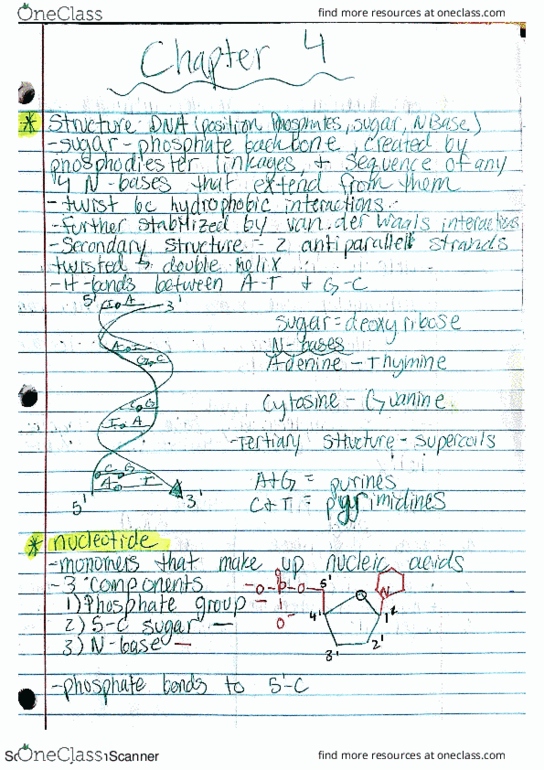 OneClass
find more resources at oneclass.com
Chapter 4
* Structure DNA (position Phosphates, sugar, N Base)
- sugar - phosphate backbone, created by
phosphodiester linkages, + sequence of any
4 N-bases that extend from them
- twist bc hydrophobic interactions
- further stabilized by van der Waals interactions
- Secondary structure - 2 antiparallel strands
twisted → double helix
- H-bonds between A-T + G-C
5' 3'
T A
A T
G C
C G
T A
C G
A T
5' 3'
sugar = deoxyribose
N-bases
Adenine - Thymine
Cytosine - Guanine
- Tertiary structure - supercoils
A+G = purines
C+T = pyrimidines
* nucleotide
- monomers that make up nucleic acids
- 3 components
1) Phosphate group -
2) 5-C sugar -
3) N-base -
O
-O-P-O-
O-
5'
O
N
4' 1'
3' 2'
- phosphate bonds to 5'-C
OneClass
Scanner
find more resources at oneclass.com